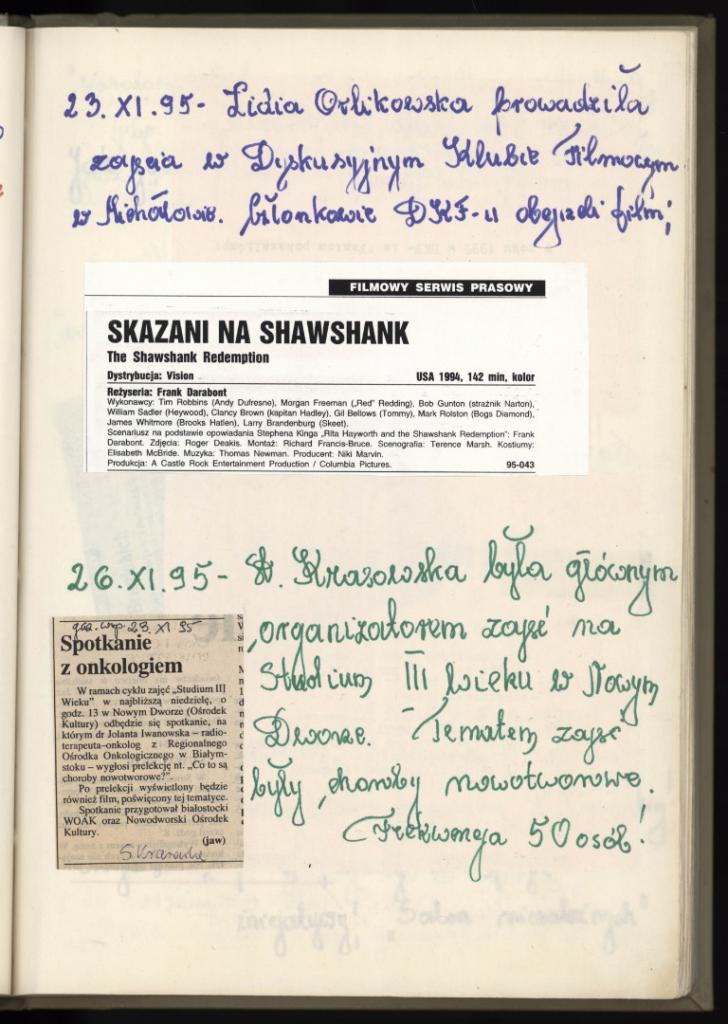 23.XI.95- Lidia Orlikowska prowadziła
zajęcia w Dyskusyjnym Klubie Filmowym
w Michałowie. Członkowie DKF-u obejrzeli film;
FILMOWY SERWIS PRASOWY
SKAZANI NA SHAWSHANK
The Shawshank Redemption
Dystrybucja: Vision USA 1994, 142 min, kolor
Reżyseria: Frank Darabont
Wykonawcy: Tim Robbins (Andy Dufresne), Morgan Freeman („Red” Redding), Bob Gunton (strażnik Narton),
William Sadler (Heywood), Clancy Brown (kapitan Hadley), Gil Bellows (Tommy), Mark Rolston (Bogs Diamond),
James Whitmore (Brooks Hatlen), Larry Brandenburg (Skeet).
Scenariusz na podstawie opowiadania Stephena Kinga „Rita Hayworth and the Shawshank Redemption”: Frank
Darabont. Zdjęcia: Roger Deakis. Montaż: Richard Francis-Bruce. Scenografia: Terence Marsh. Kostiumy:
Elisabeth McBride. Muzyka: Thomas Newman. Producent: Niki Marvin.
Produkcja: A Castle Rock Entertainment Production / Columbia Pictures. 95-043
26.XI.95- S. Krasowska była głównym
organizatorem zajęć na
Studium III wieku w Nowym
Dworze. Tematem zajęć
były „choroby nowotworowe.
Frekwencja 50 osób!
gaz. wsp. 23. XI 95
Spotkanie
z onkologiem
W ramach cyklu zajęć „Studium III
Wieku” w najbliższą niedzielę, o
godz. 13 w Nowym Dworze (Ośrodek
Kultury) odbędzie się spotkanie, na
którym dr Jolanta Iwanowska – radio-
terapeuta-onkolog z Regionalnego
Ośrodka Onkologicznego w Białym-
stoku – wygłosi prelekcję nt. „Co to są
choroby nowotworowe?”.
Po prelekcji wyświetlony będzie
również film, poświęcony tej tematyce.
Spotkanie przygotował białostocki
WOAK oraz Nowodworski Ośrodek
Kultury.
(jaw)
S. Krasowska